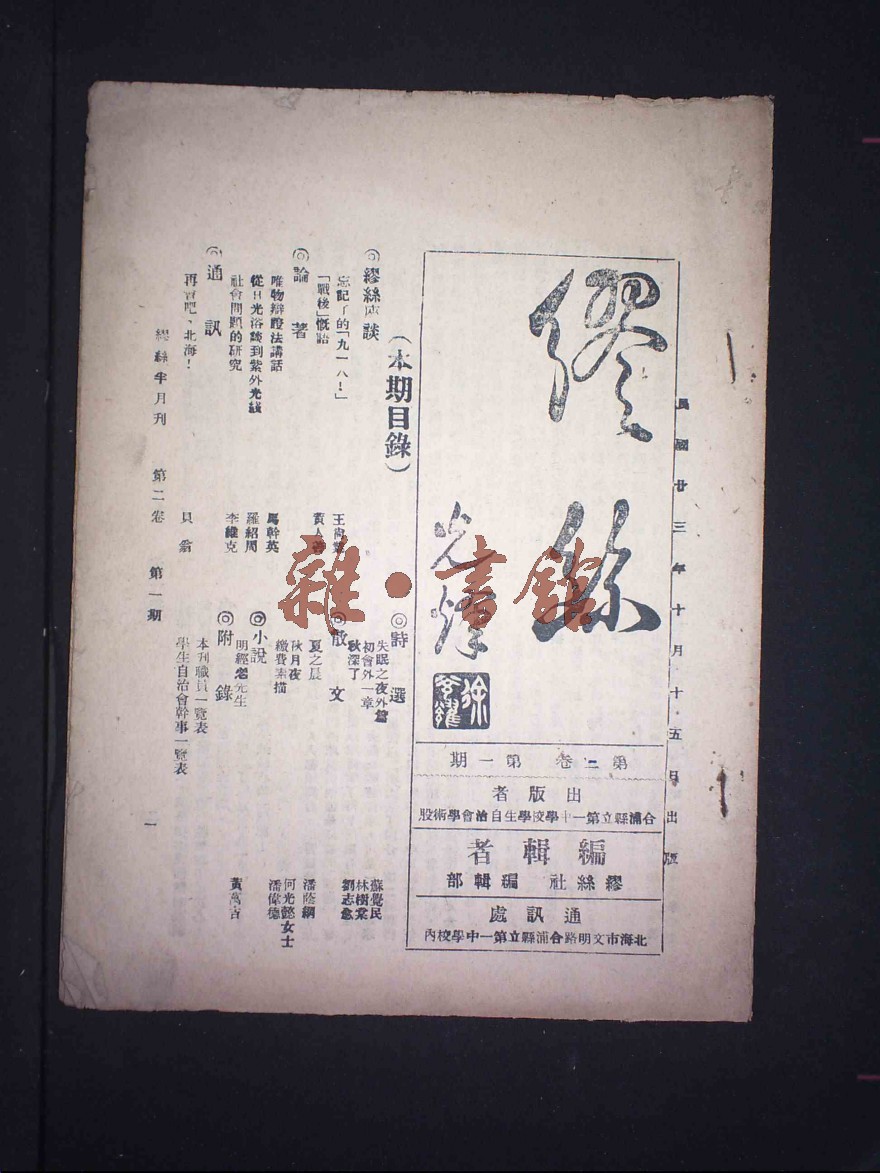 民國廿三年十月十五日出版
繆絲
光燡
第二卷 第一期
出版者
合浦縣立第一中學校學生自治會學術股
編輯者
繆絲社 編輯部
通訊處
北海市文明路合浦縣立第一中學校內
(本期目錄)
◎繆絲座談
忘記了的「九一八!」 王尚
「戰後」慨語 黃人
◎論著
唯物辯證法講話 馬幹英
從日光浴談到紫外光綫 羅紹周
社會問題的研究 李維克
◎通訊
再會吧,北海! 貝翁
◎詩選
失眠之夜外篇 蘇覺民
初會外一章 林樹棠
秋深了 劉志
◎散文
夏之晨 潘蔭綱
秋月夜 何光懿女士
繳費素描 潘偉德
◎小說
明經老先生 黃萬吉
◎附錄
本刊職員一覽表
學生自治會幹事一覽表
繆絲半月刊 第二卷 第一期 一
雜·書館